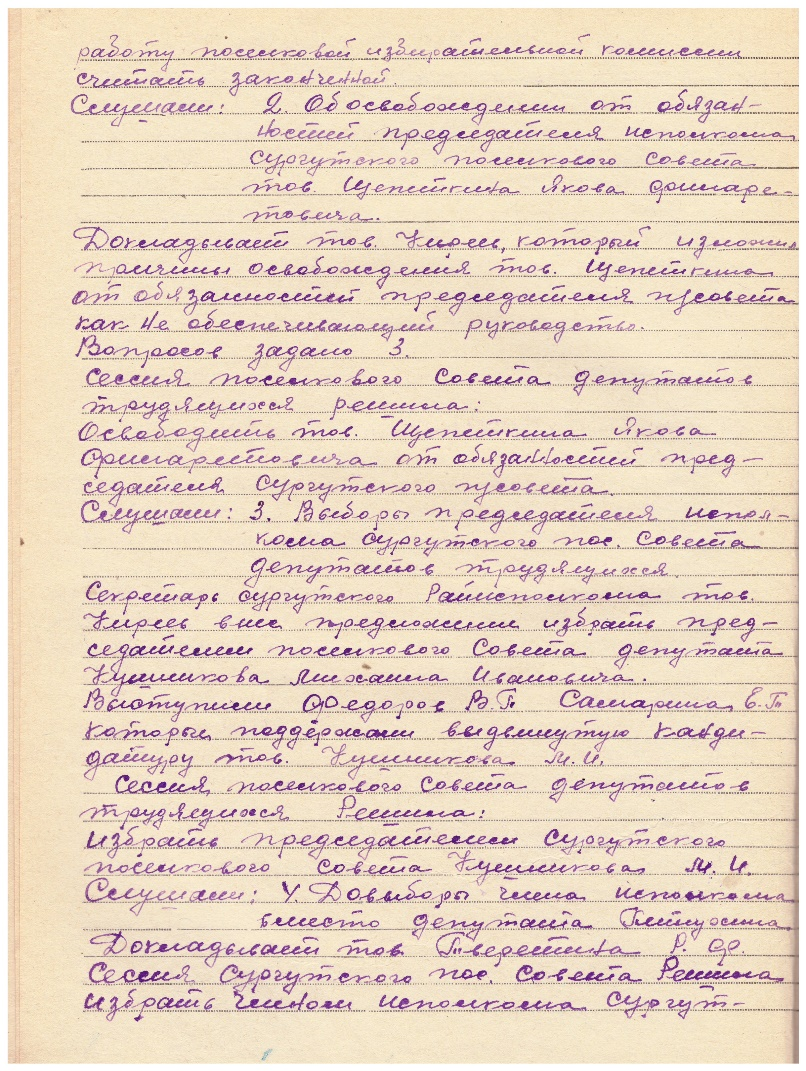 работу поселковой избирательной комиссии
считать законченной.
Слушали: 2. Об освобождении от обязан-
ностей председателя исполкома
Сургутского поселкового Совета
тов. Щепеткина Якова Филаре-
товича.
Докладывает тов. Кирев, который изложил
причины освобождения тов. Щепеткина
от обязанностей председателя п/совета
как не обеспечивающий руководство.
Вопросов задано 3.
Сессия поселкового Совета депутатов
трудящихся решила:
Освободить тов. Щепеткина Якова
Филаретовича от обязанностей пред-
седателя Сургутского п/совета.
Слушали: 3. Выборы председателя испол-
кома Сургутского пос. Совета
депутатов трудящихся.
Секретарь Сургутского Райисполкома тов.
Кирев внес предложении избрать пред-
седателем поселкового Совета депутата
Кушникова Михаила Ивановича.
Выступили Федоров В.П. Самарина Е.П
которые поддержали выдвинутую канди-
датуру тов. Кушникова М.И.
Сессия поселкового Совета депутатов
трудящихся Решила:
Избрать председателем Сургутского
поселкового совета Кушникова М.И.
Слушали: 4. Довыборы члена исполкома
вместо депутата
Докладывает тов. Тверетина Р. Ф.
Сессия Сургутского пос. Совета Решила
избрать членом исполкома Сургут-